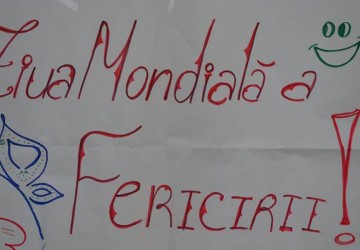 Ziua Mondială a
FERICIRII!